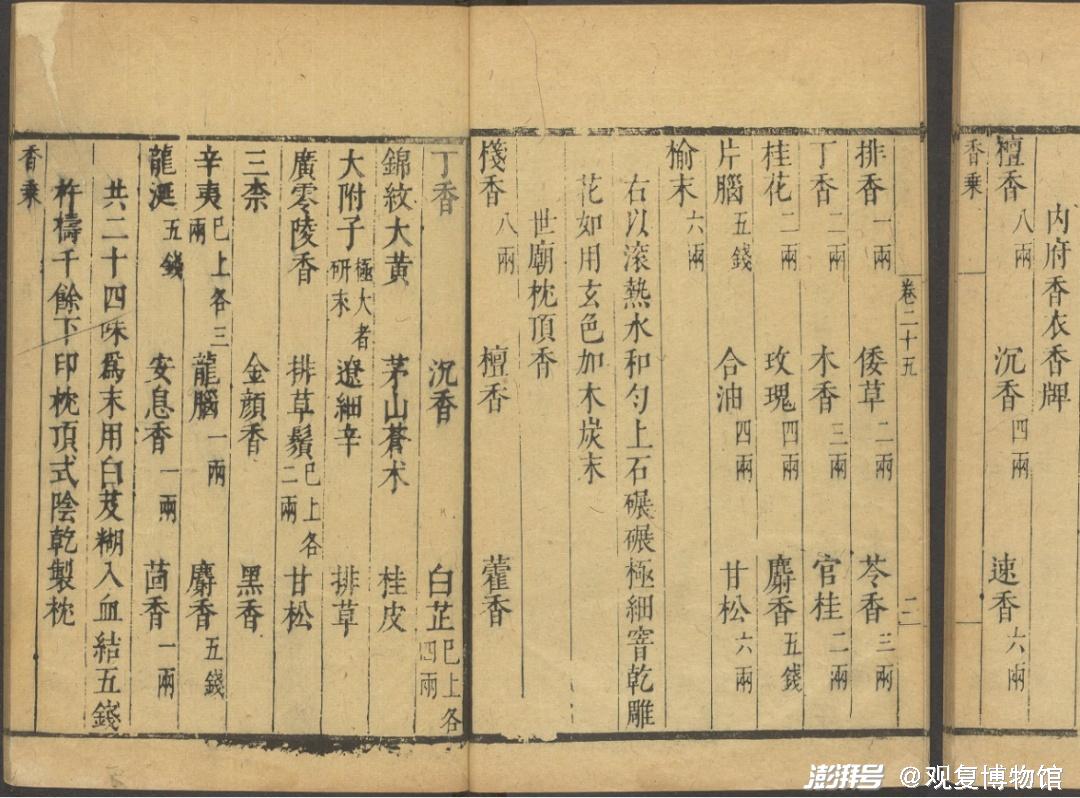 內府香衣香牌
檀香八兩 沉香四兩 速香六兩
香乗
卷二十五 二
排香一兩 倭草二兩 苓香三兩
丁香二兩 木香三兩 官桂二兩
桂花二兩 玫瑰四兩 麝香五錢
片腦五錢 合油四兩 甘松六兩
榆末六兩
右以滾熱水和勻上石碾碾極細窨乾雕
花如用玄色加木炭末
世廟枕頂香
棧香八兩 檀香 藿香
丁香 沉香 白芷已上各四兩
錦紋大黃 茅山蒼术 桂皮
大附子極大者研末 遼細辛 排草
廣零陵香 排草鬚已上各二兩 甘松
三柰 金顏香 黑香
辛夷已上各三兩 龍腦一兩 麝香五錢
龍涎五錢 安息香一兩 茴香一兩
共二十四味爲末用白芨糊入血結五錢
杵擣千餘下印枕頂式陰乾製枕
香乗
澎湃号 @观复博物馆